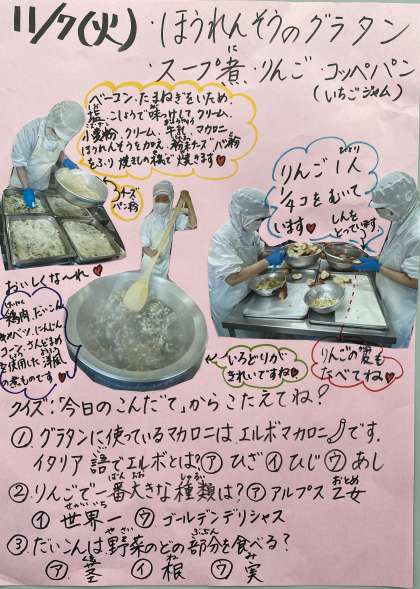 11/7(火)
・ほうれんそうのグラタン
・スープ煮・りんご・コッペパン
(いちごジャム)
ベーコン、たまねぎをいため、
塩、こしょうで味つけして、クリーム、
小麦粉、クリーム、牛乳、マカロニ、
ほうれんそうを加え、粉末チーズ、パン粉
をふり焼きもの機で焼きます♥
チーズ
パン粉
りんご1人
1/4コをむいて
います♥
しんを
とっています
おいしくな〜れ♥
鶏肉、だいこん
キャベツ、にんじん
コーン、さんどまめ
を使用した洋風
の煮ものです♥
いろどりが
きれいですね♥
りんごの皮も
たべてね♥
クイズ:「今日のこんだて」からこたえてね?
①グラタンに使っているマカロニはエルボマカロニです。
イタリア語でエルボとは?㋐ひざ㋑ひじ㋒あし
②りんごで一番大きな種類は?㋐アルプス乙女
㋑世界一 ㋒ゴールデンデリシャス
③だいこんは野菜のどの部分を食べる?
㋐茎 ㋑根 ㋒実